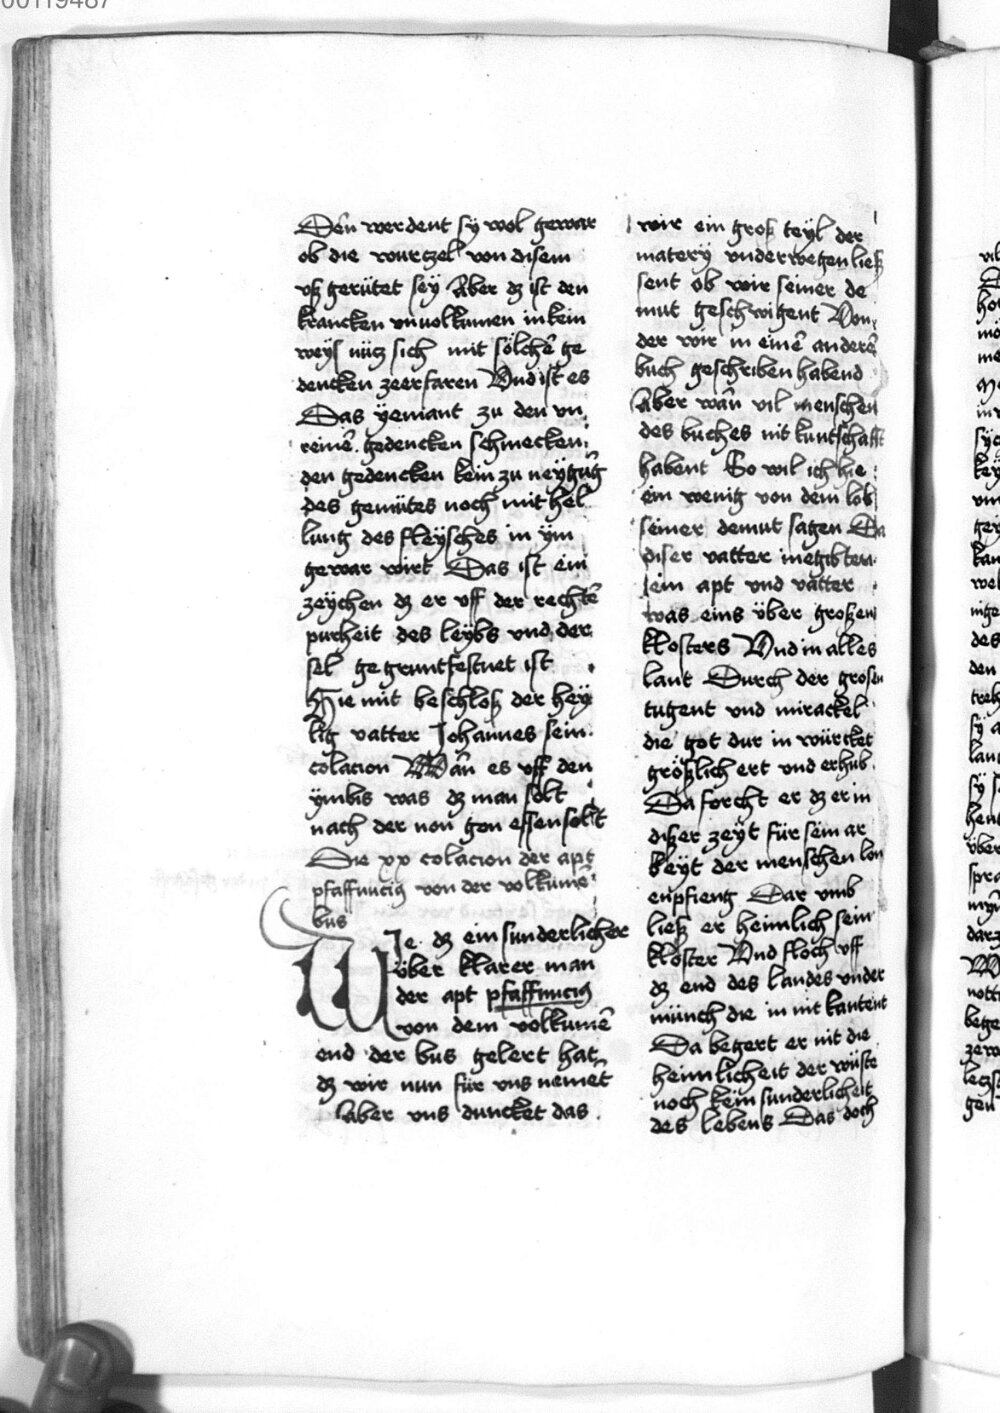 00119487
Deñ werdent sy wol gewar
ob die wurczel von disem
vß gerütet sey Aber dz ist den
krancken vnuolkumen in kein
weys nücz sich mit sölchē ge
dencken zeerfaren Vnd ist es
Das yemant zu den vn
reinē gedencken schmecken
den gedencken kein zu neygūg
des gemütes noch mit hel
lung des fleysches in ym
gewar wirt Das ist ein
zeychen dz er vff der rechtē
purheit des leybs vnd der
sel gegruntfestnet ist
Hie mit beschloß der hey
lig vatter Johannes sein
colacion Wañ es vff den
ymbis was dz man solt
nach der non gon essen solt
Die xx colacion der apt
pfaffnucig von der volkumē
bus
WIe dz ein sunderlicher
über klarer man
der apt pfaffnucig
von dem volkumē
end der bus gelert hat
dz wir nun für vns nemēt
Aber vns duncket das
wir ein groß teyl der
matery vnderwegen ließ
sent ob wir seiner de
mut geschwigent Von
der wir in einē anderē
buch geschriben habend
Aber wañ vil menschen
des buches nit kuntschafft
habent So wil ich hie
ein wenig von dem lob
seiner demut sagen Da
diser vatter in egipten
ein apt vnd vatter
was eins über großen
klosters Vnd in alles
lant Durch der grosen
tugent vnd mirackel
die got dur in würcket
größlich ert vnd erhub
Da forcht er dz er in
dißer zeyt für sein ar
beyt der menschen lon
enpfieng Dar vmb
ließ er heimlich sein
kloster Vnd floch vff
dz end des landes vnder
münch die in nit kantent
Da begert er nit die
heimlicheit der wüste
noch kein sunderlicheit
des lebens Das doch